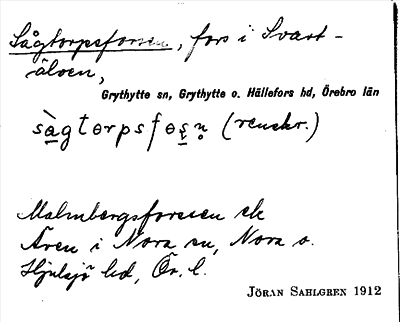 Sågtorpsforsen, fors i Svart-
älven,
Grythytte sn, Grythytte o. Hällefors hd, Örebro län
sàgtorpsfosn (renskr.)
Malmbergsforsen ek
Även i Nora sn, Nora o.
Hjulsjö hd, Ör. l.
JÖRAN SAHLGREN 1912